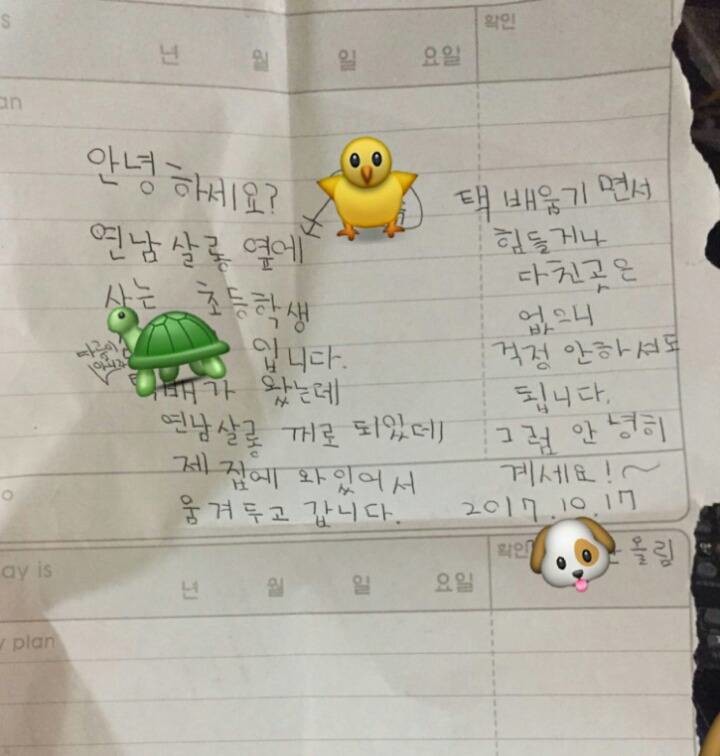 s
확인
년 월 일 요일
an
안녕하세요?
연남살롱 옆에
사는 초등학생
입니다.
택배가 왔는데
연남살롱 꺼로 되있데
제 집에 와있어서
움겨두고 갑니다.
택배움기면서
힘들거나
다친곳은
없으니
걱정 안하셔도
됩니다.
그럼 안녕히
계세요!~
2017.10.17
올림
o
ay is
확인
년 월 일 요일
y plan